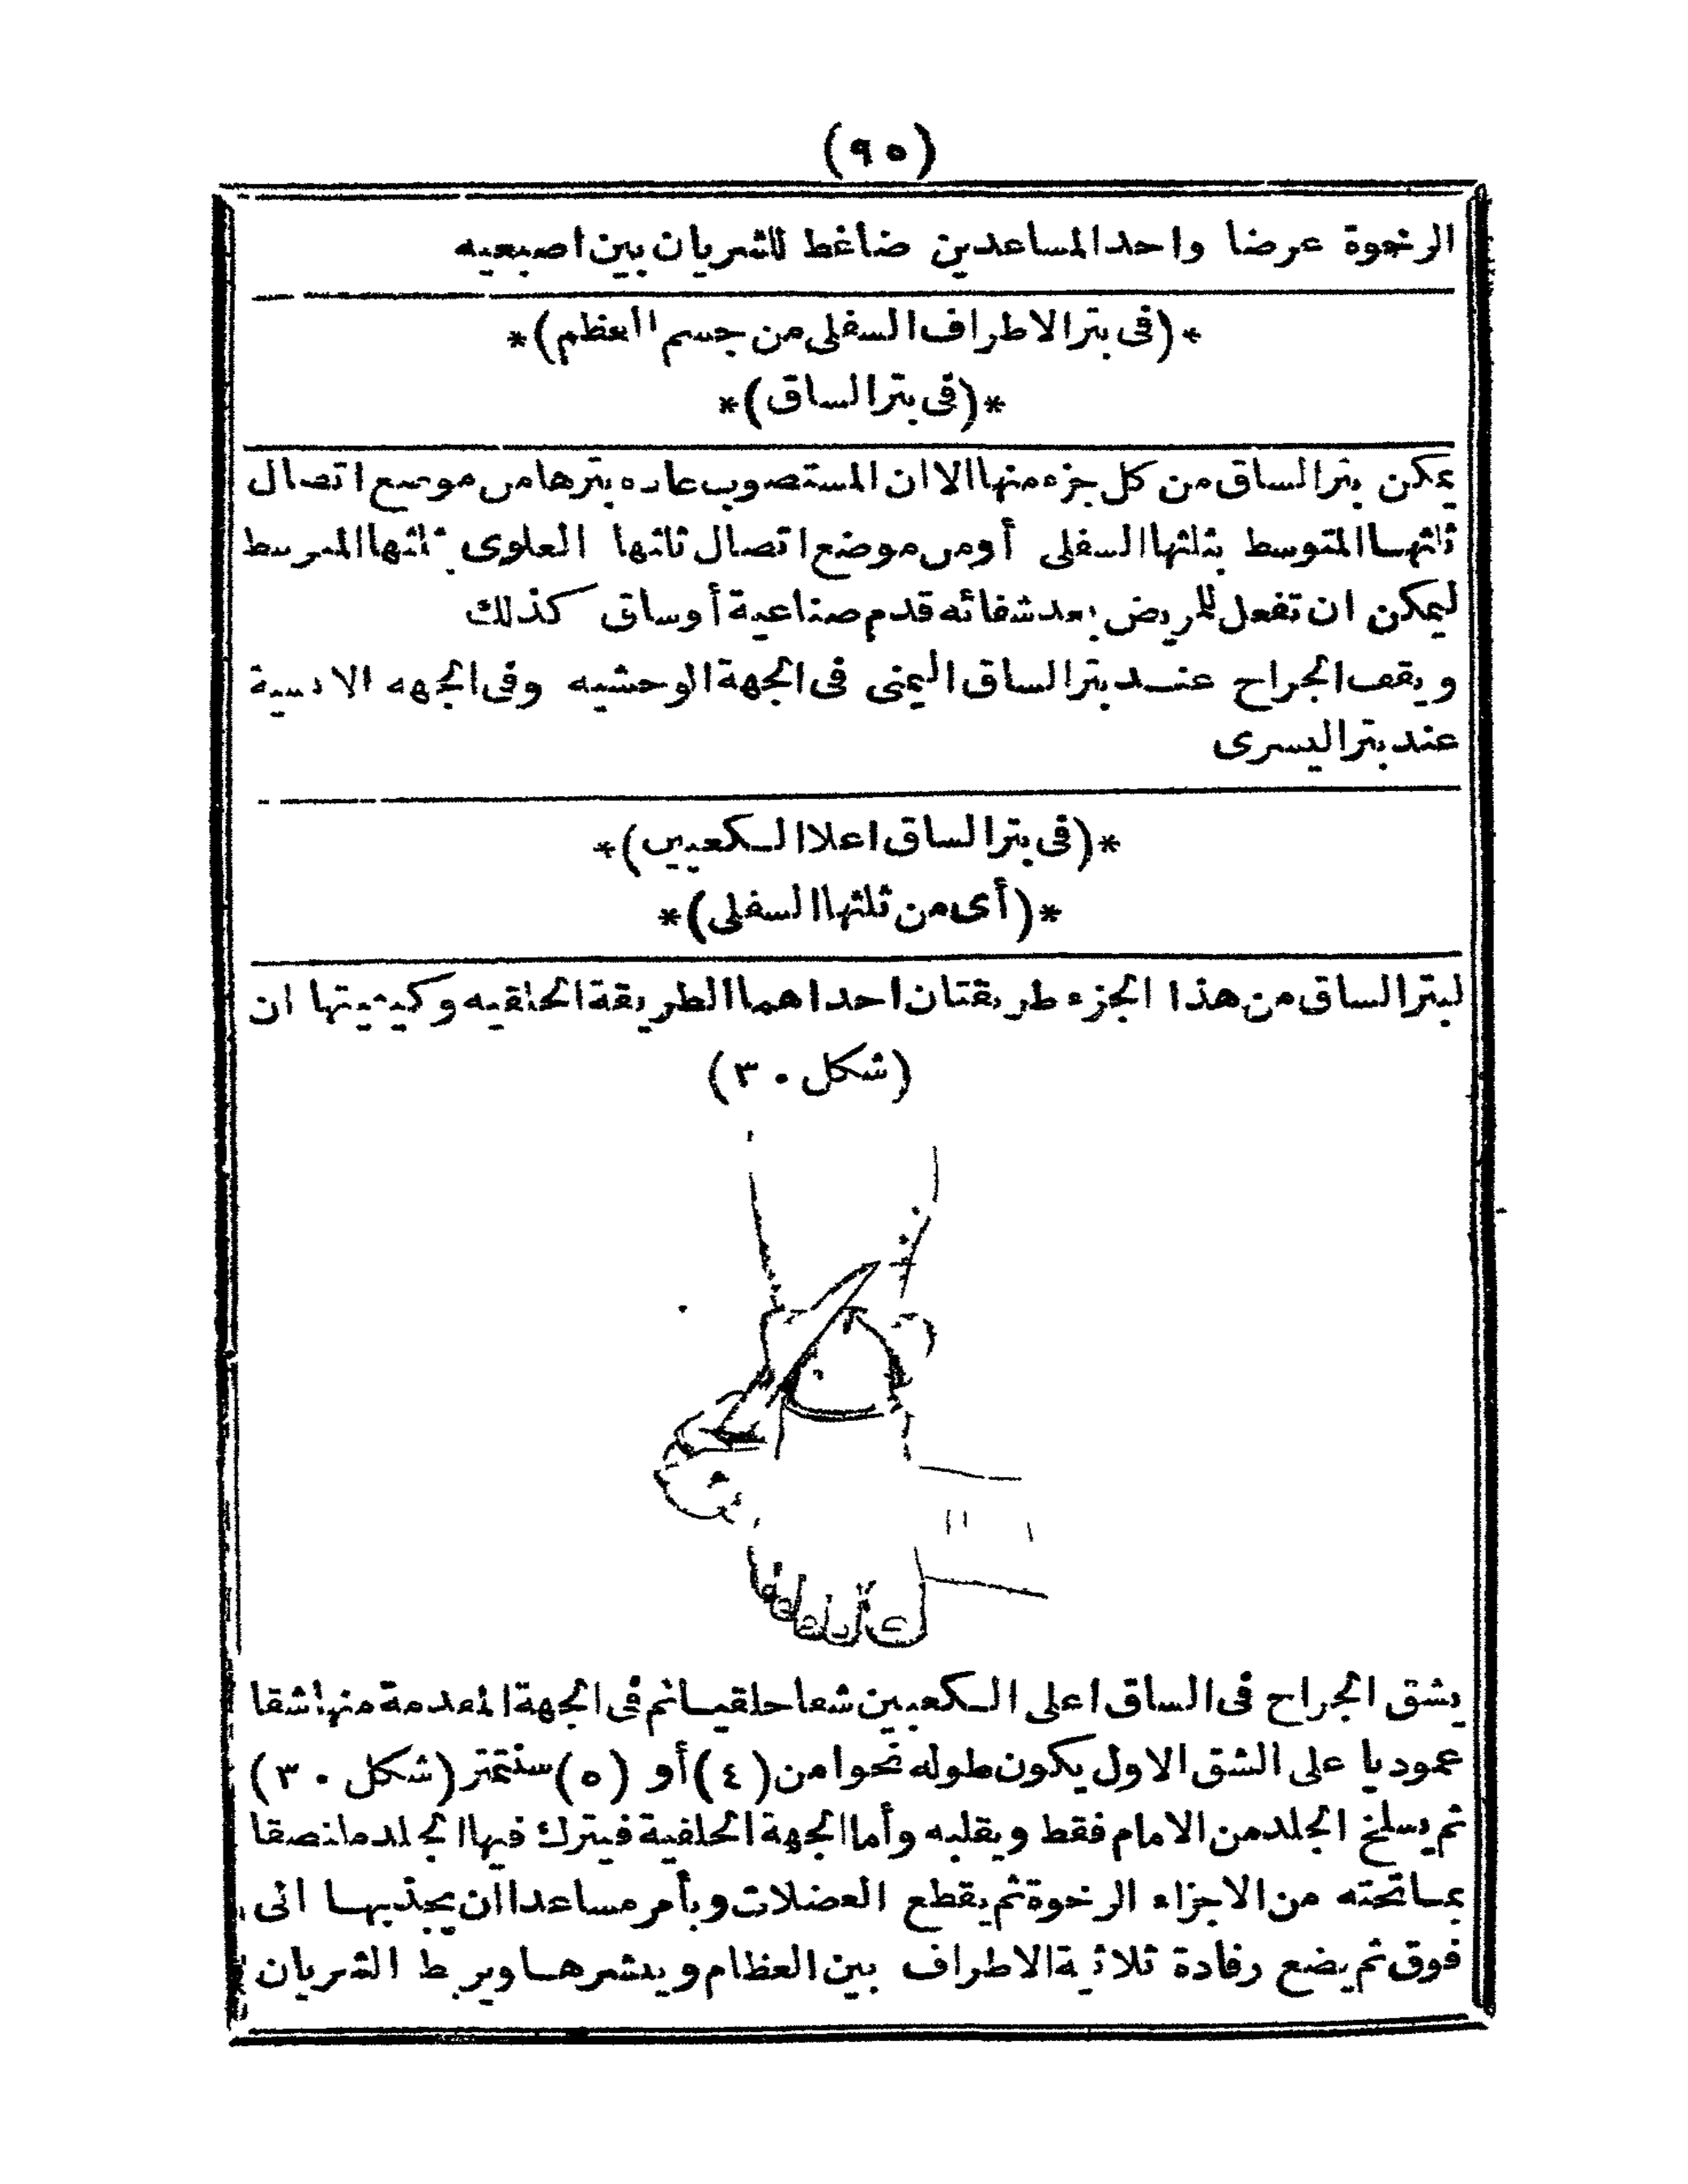 (٩٥)
الرخوة عرضا واحد المساعدين ضاغط للشريان بين اصبعيه
*(فى بتر الاطراف السفلى من جسم العظم)*
*(فى بتر الساق)*
يمكن بتر الساق من كل جزء منها الا ان المستصوب عاده بترها من موضع اتصال
ثلثها المتوسط بثلثها السفلى أو من موضع اتصال ثلثها العلوى بثلثها المتوسط
ليمكن ان تفعل للمريض بعد شفائه قدم صناعية أو ساق كذلك
ويقف الجراح عند بتر الساق اليمنى فى الجهة الوحشيه وفى الجهه الانسية
عند بتر اليسرى
*(فى بتر الساق اعلا الكعبين)*
*(أى من ثلثها السفلى)*
لبتر الساق من هذا الجزء طريقتان احداهما الطريقة الحلقيه وكيفيتها ان
(شكل ٣٠)
يشق الجراح فى الساق اعلى الكعبين شقا حلقيا ثم فى الجهة المقدمة منها شقا
عموديا على الشق الاول يكون طوله نحوا من (٤) أو (٥) سنتمتر (شكل ٣٠)
ثم يسلخ الجلد من الامام فقط ويقلبه وأما الجهة الخلفية فيترك فيها الجلد ملتصقا
بما تحته من الاجزاء الرخوة ثم يقطع العضلات ويأمر مساعدا ان يجذبها الى
فوق ثم يضع رفادة ثلاثية الاطراف بين العظام وينشرها ويربط الشريان